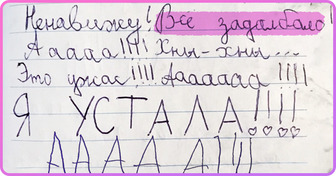 Ненавижу! Все задолбало!
Ааааа!!!! Хны-хны...
Это ужас!!!! Ааааааа!!!!
Я УСТАЛА!!!!
АААА А!!!!